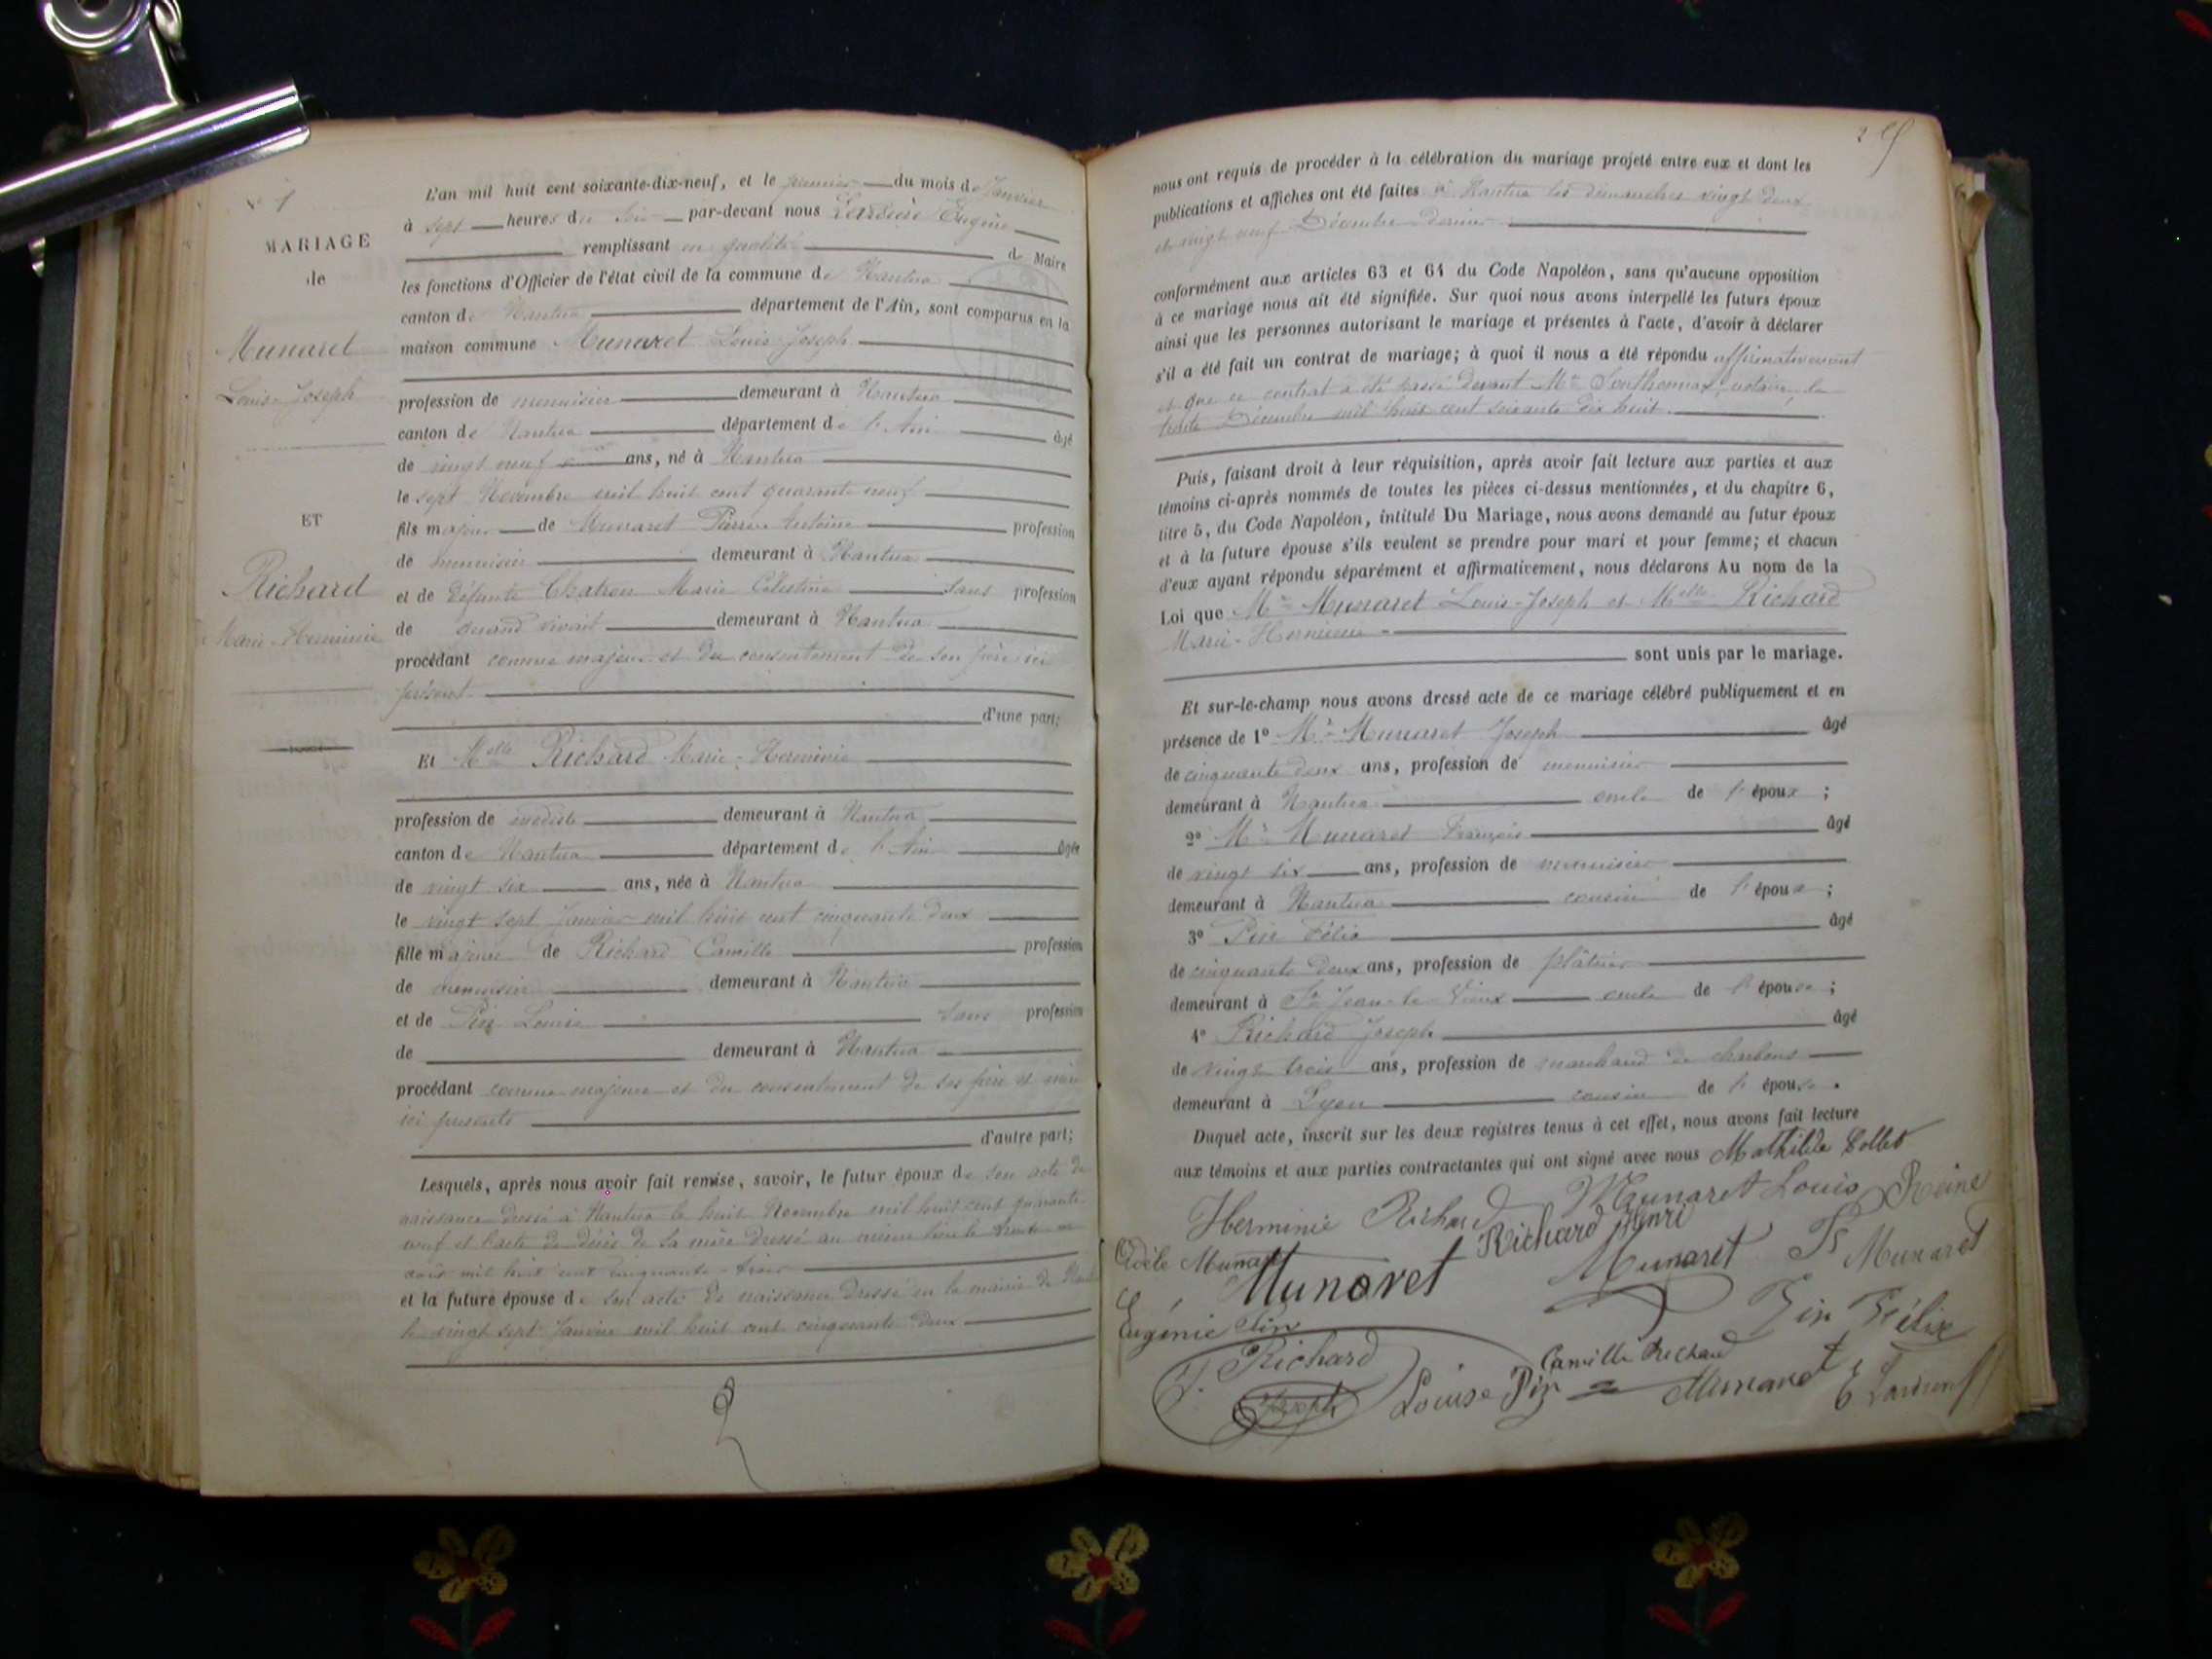 N° 1
MARIAGE
de
Munaret
Louis-Joseph
ET
Richard
Marie-Herminie
L'an mil huit cent soixante-dix-neuf, et le premier du mois de Janvier
à sept heures du soir par-devant nous Eugène
remplissant en qualité de Maire
les fonctions d'Officier de l'état civil de la commune de Nantua
canton de Nantua département de l'Ain, sont comparus en la
maison commune Munaret Louis-Joseph
profession de menuisier demeurant à Nantua
canton de Nantua département de l'Ain âgé
de vingt neuf ans, né à Nantua
le sept Novembre mil huit cent quarante neuf
fils majeur de Munaret Pierre Antoine profession
de menuisier demeurant à Nantua
et de défunte Chatron Marie Célestine sans profession
de quand vivait demeurant à Nantua
procédant comme majeur et du consentement de son père ici
présent
d'une part;
Et Melle Richard Marie-Herminie
profession de modiste demeurant à Nantua
canton de Nantua département de l'Ain âgée
de vingt six ans, née à Nantua
le vingt sept Janvier mil huit cent cinquante deux
fille majeure de Richard Camille profession
de menuisier demeurant à Nantua
et de Pin Louise sans profession
de demeurant à Nantua
procédant comme majeure et du consentement de ses père et mère
ici présents
d'autre part;
Lesquels, après nous avoir fait remise, savoir, le futur époux de son acte de
naissance dressé à Nantua le huit Novembre mil huit cent quarante
neuf et l'acte de décès de sa mère dressé au même lieu le trente un
août mil huit cent cinquante-trois
et la future épouse de son acte de naissance dressé en la mairie de
le vingt sept Janvier mil huit cent cinquante deux
nous ont requis de procéder à la célébration du mariage projeté entre eux et dont les
publications et affiches ont été faites à Nantua les dimanches vingt deux
et vingt neuf Décembre dernier
conformément aux articles 63 et 64 du Code Napoléon, sans qu'aucune opposition
à ce mariage nous ait été signifiée. Sur quoi nous avons interpellé les futurs époux
ainsi que les personnes autorisant le mariage et présentes à l'acte, d'avoir à déclarer
s'il a été fait un contrat de mariage; à quoi il nous a été répondu affirmativement
et que ce contrat a été passé devant Me Southonnax, notaire, le
trente Décembre mil huit cent soixante dix huit.
Puis, faisant droit à leur réquisition, après avoir fait lecture aux parties et aux
témoins ci-après nommés de toutes les pièces ci-dessus mentionnées, et du chapitre 6,
titre 5, du Code Napoléon, intitulé Du Mariage, nous avons demandé au futur époux
et à la future épouse s'ils veulent se prendre pour mari et pour femme; et chacun
d'eux ayant répondu séparément et affirmativement, nous déclarons Au nom de la
Loi que Mr Munaret Louis-Joseph et Melle Richard
Marie-Herminie
sont unis par le mariage.
Et sur-le-champ nous avons dressé acte de ce mariage célébré publiquement et en
présence de 1° Mr Munaret Joseph âgé
de cinquante deux ans, profession de menuisier
demeurant à Nantua oncle de l'époux ;
2° Mr Munaret François âgé
de vingt six ans, profession de menuisier
demeurant à Nantua cousin de l'époux ;
3° Pin Félix âgé
de cinquante deux ans, profession de plâtrier
demeurant à St Jean-le-Vieux oncle de l'épouse ;
4° Richard Joseph âgé
de vingt trois ans, profession de marchand de charbons
demeurant à Lyon cousin de l'épouse.
Duquel acte, inscrit sur les deux registres tenus à cet effet, nous avons fait lecture
aux témoins et aux parties contractantes qui ont signé avec nous Mathilde Collet
Herminie Richard Munaret Louis Reine
Richard Henri
Adèle Munaret Munaret Munaret Fs Munaret
Eugénie Pin Pin Félix
J. Richard Camille Richard
Joseph Louise Pin Munaret